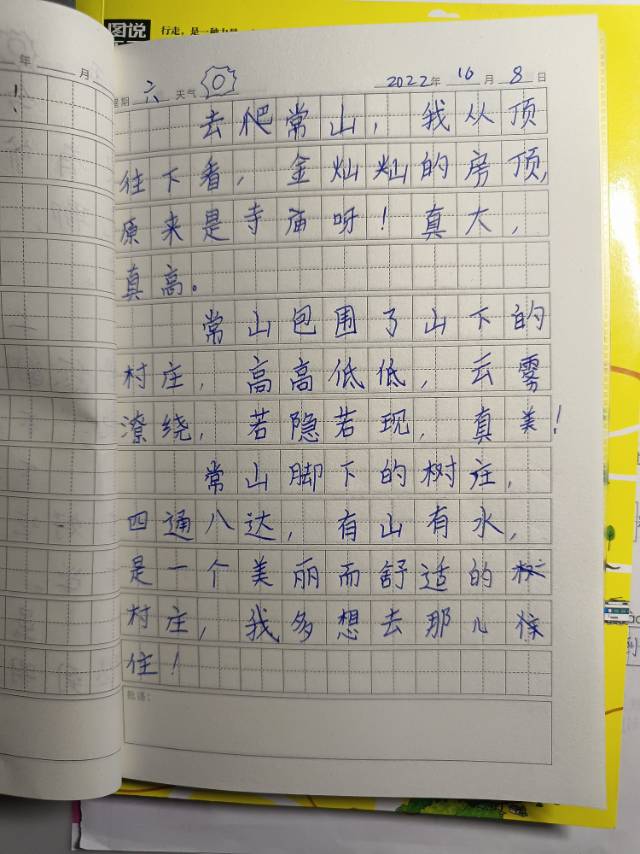 图说
行走,是一种力量
年 月
星期 六 天气
2022年 10月 8日
去爬常山,我从顶
往下看,金灿灿的房顶,
原来是寺庙呀!真大,
真高。
常山包围了山下的
村庄,高高低低,云雾
潦绕,若隐若现,真美!
常山脚下的树庄,
四通八达,有山有水,
是一个美丽而舒适的
村庄,我多想去那儿
住!
批语: